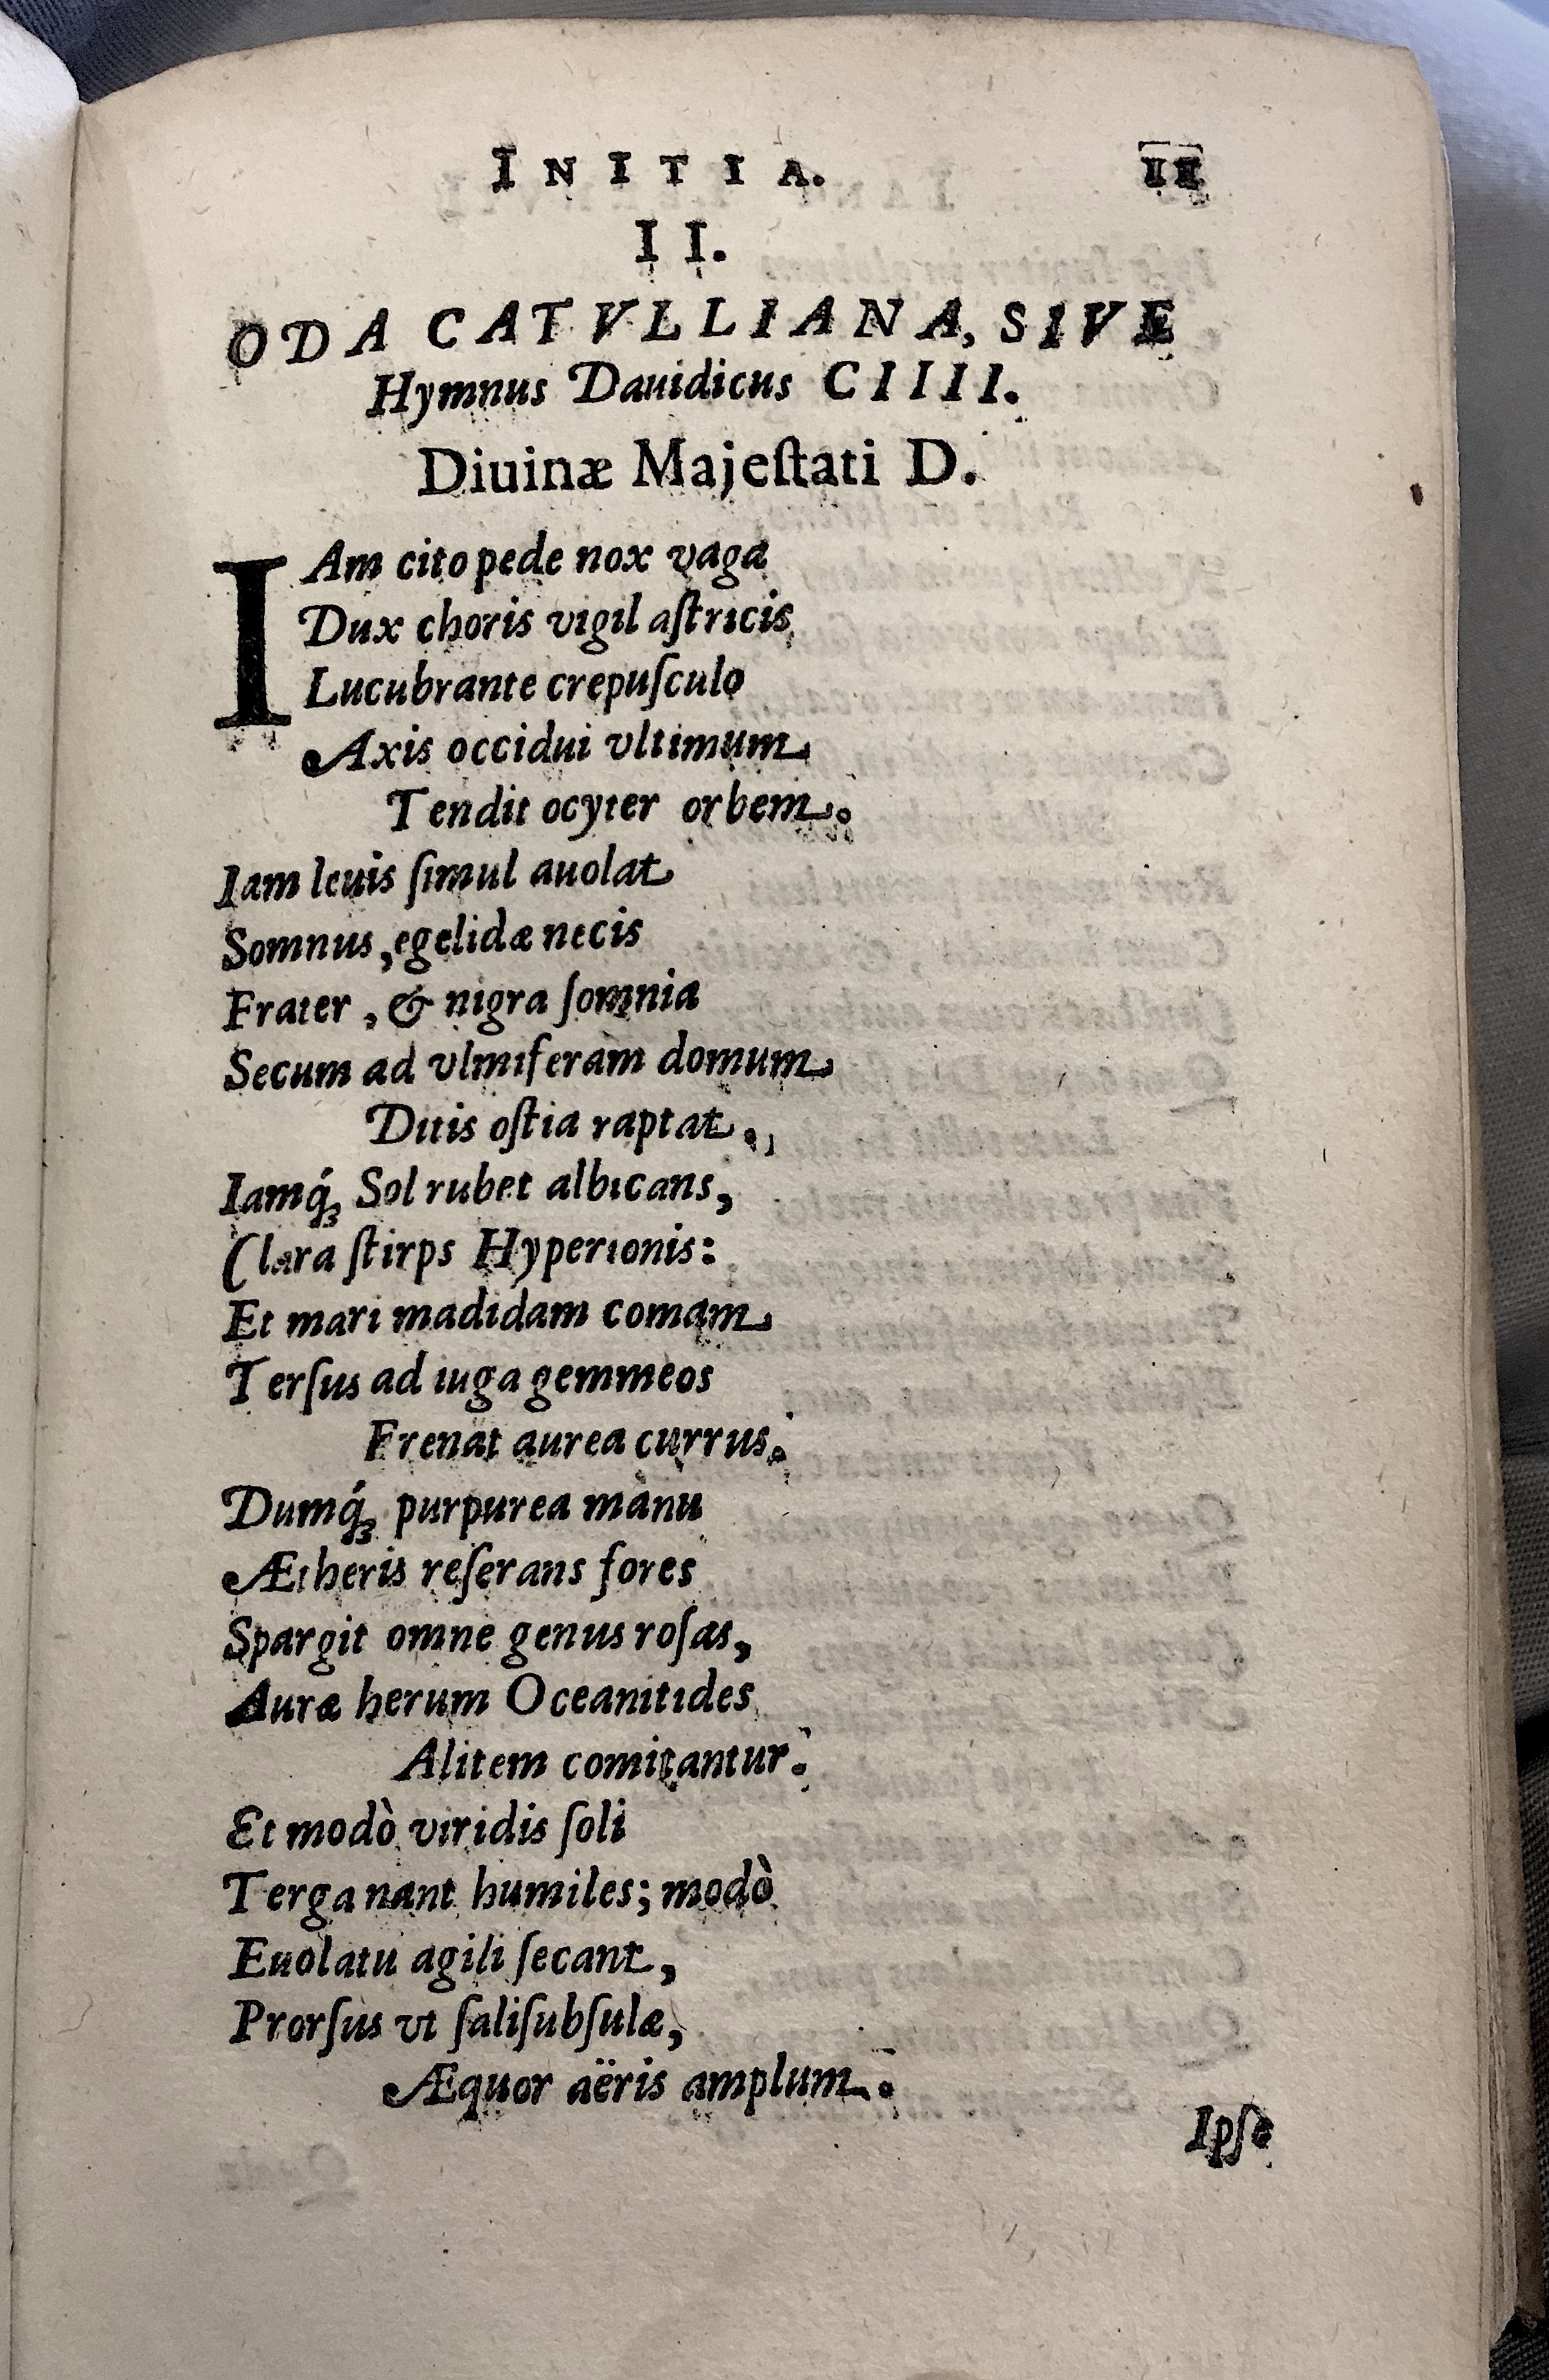 INITIA. 11
II.
ODA CATVLLIANA, SIVE
Hymnus Dauidicus CIIII.
Diuinæ Majeſtati D.
IAm cito pede nox vaga
Dux choris vigil aſtricis,
Lucubrante crepuſculo
Axis occidui vltimum
Tendit ocyter orbem.
Iam leuis ſimul auolat
Somnus, egelidæ necis
Frater, & nigra ſomnia
Secum ad vlmiferam domum
Ditis oſtia raptat.
Iamq́ꝫ Sol rubet albicans,
Clara ſtirps Hyperionis:
Et mari madidam comam
Terſus ad iuga gemmeos
Frenat aurea currus.
Dumq́ꝫ purpurea manu
Ætheris reſerans fores
Spargit omne genus roſas,
Auræ herum Oceanitides
Alitem comitantur.
Et modò viridis ſoli
Terga nant humiles; modò
Euolatu agili ſecant,
Prorſus vt ſaliſubſulæ,
Æquor aëris amplum.
Ipſe